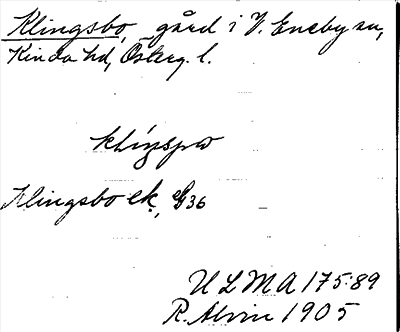 Klingsbo, gård i V. Eneby sn,
Kinda hd, Österg. l.
Klingsbo ek., G36
ULMA 175:89
R. Alvin 1905